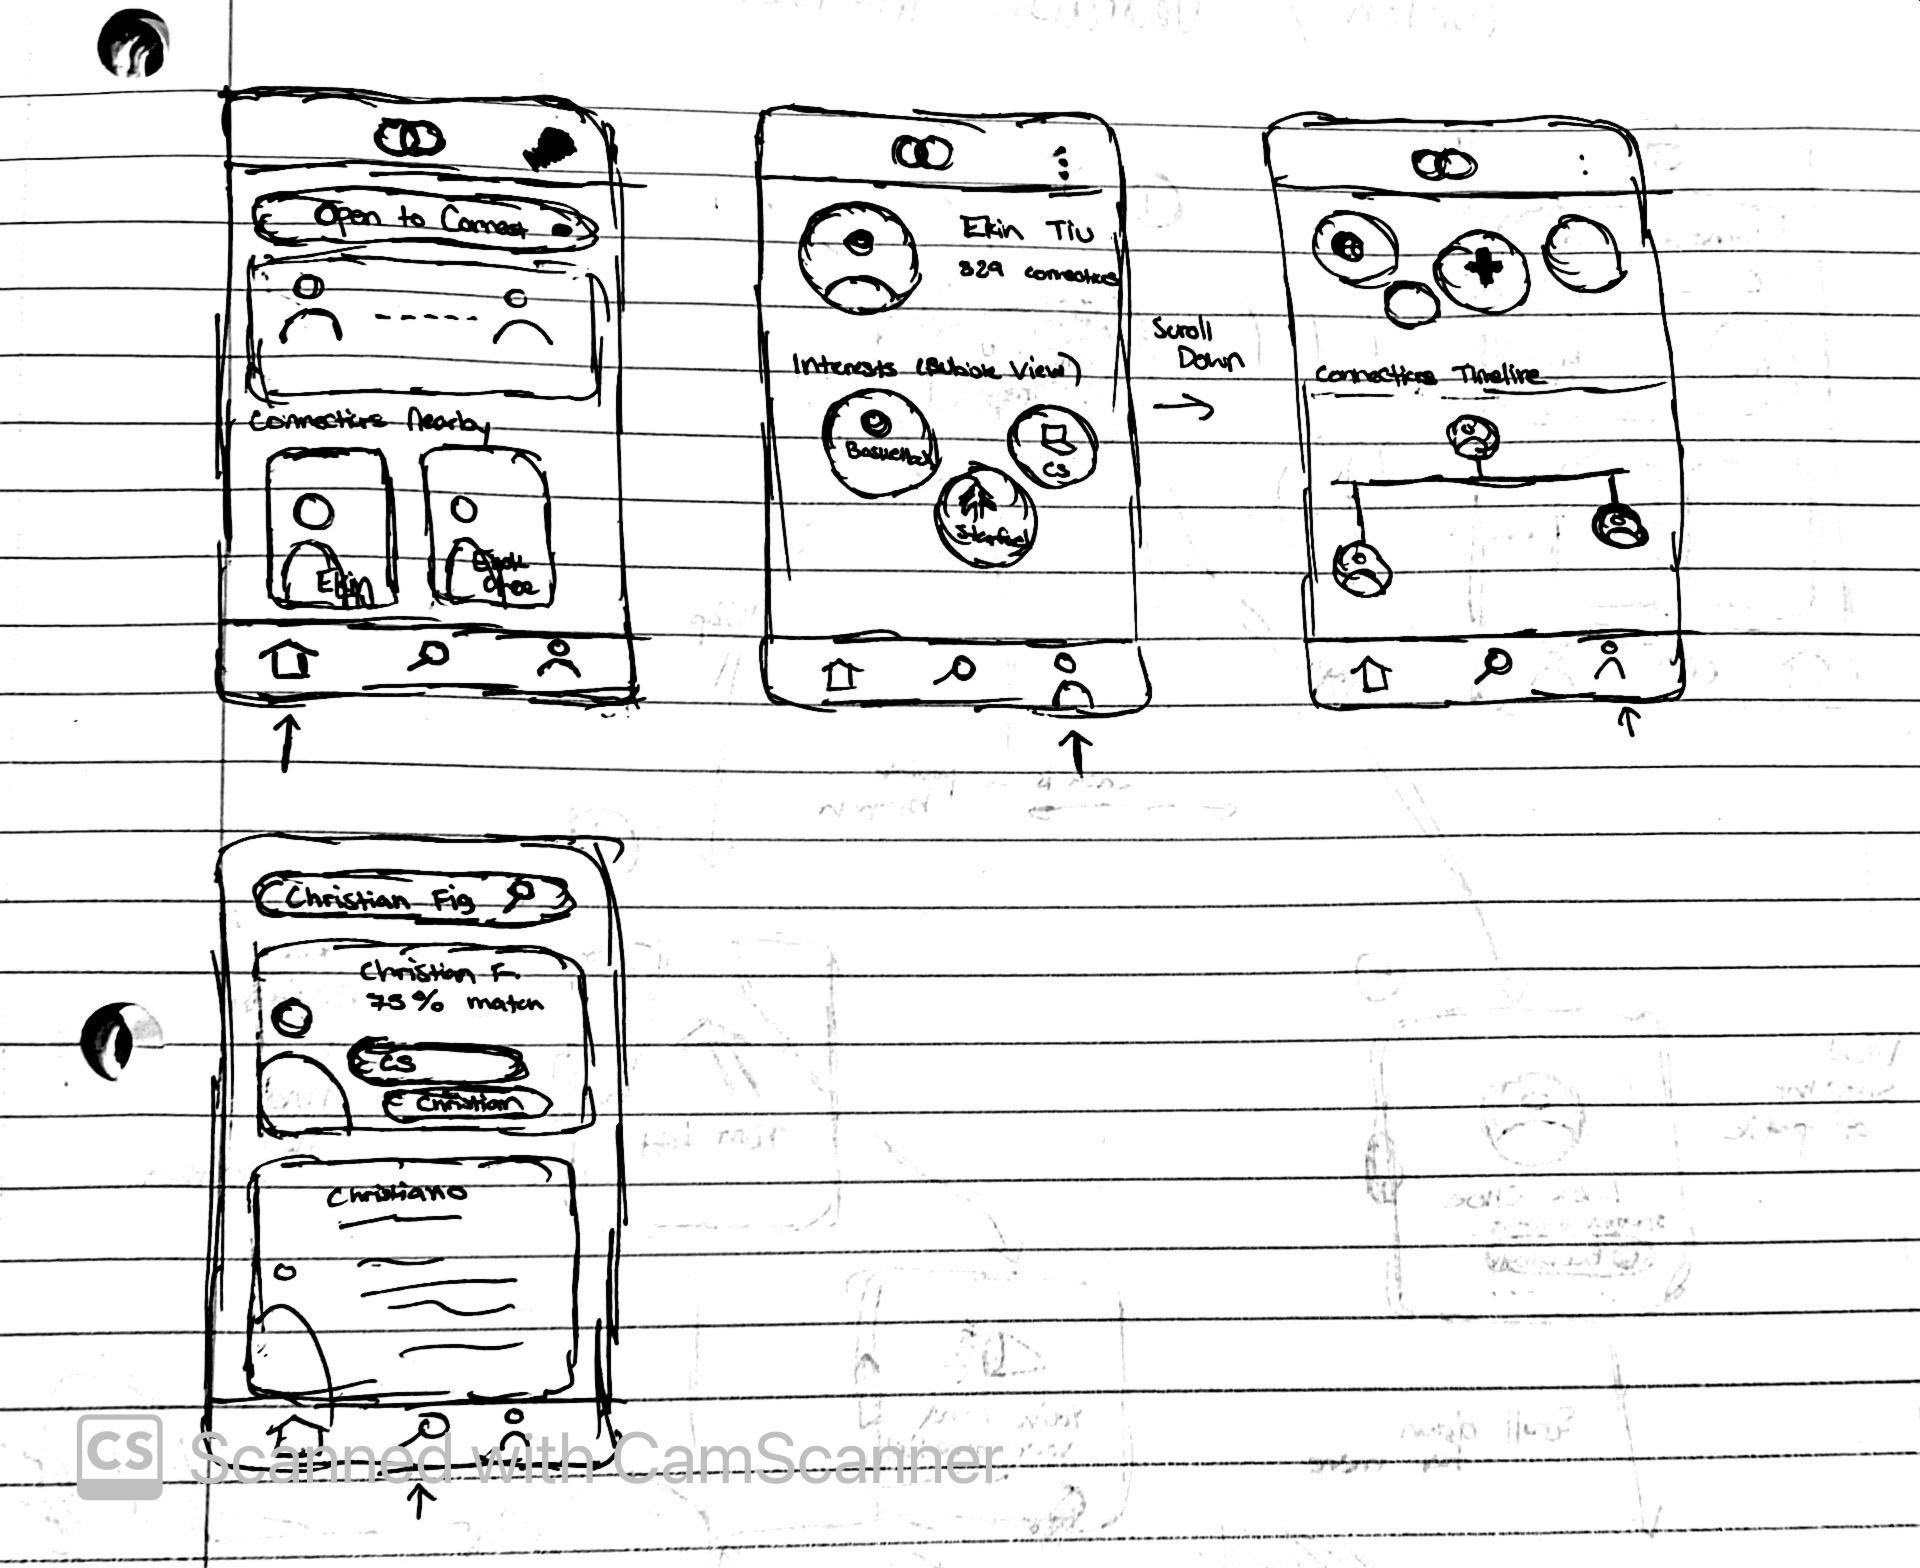 Open to Connect
Connections Nearby
Ekin
Ekin Tiu
329 connections
Interests (Bubble View)
Basketball
CS
Stanford
Scroll
Down
Connections Timeline
Christian Fig
Christian F.
75% match
CS
Christian
Christiano
CS Scanned with CamScanner